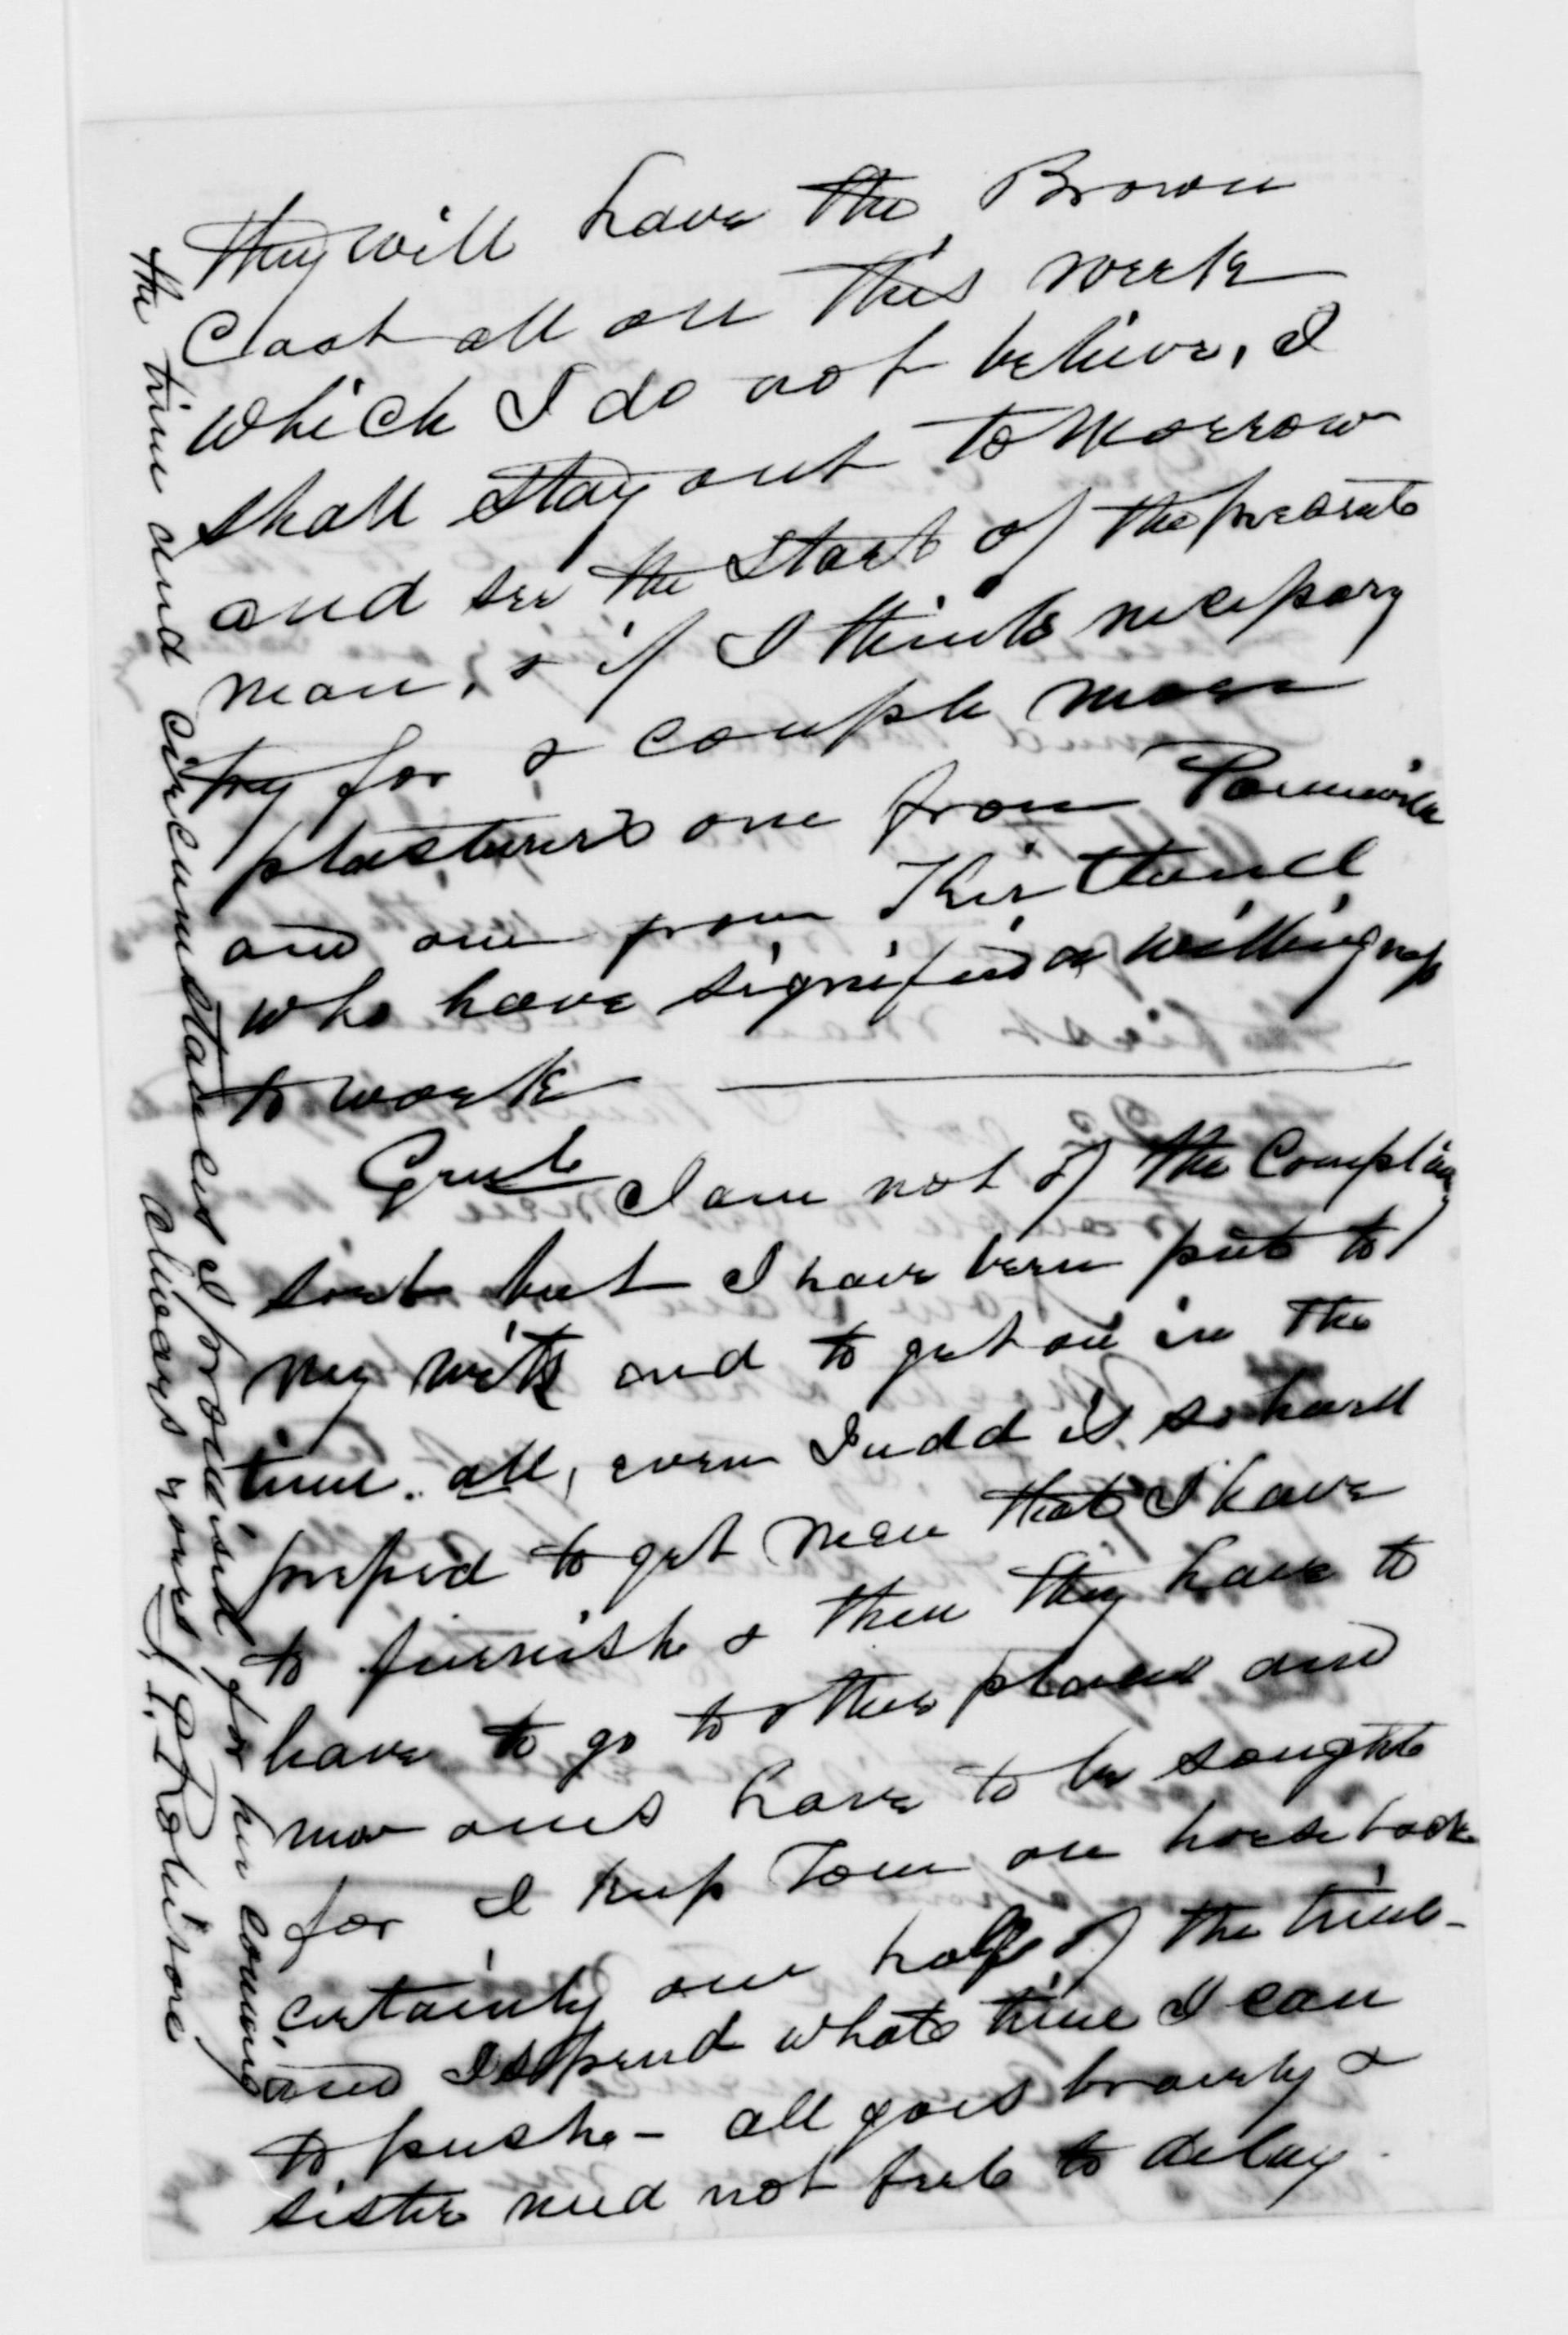 they will have the Brown
Coat all on this week
which I do not believe, I
shall stay out to morrow
and see the start of the present
man, & if I think necessary
try for a couple more
plasterers one from
and one from Kirtland
who have signified a willingness
to work
I am not of the Complaing
sort but I have been put to
my wits end to get on in the
time. all, even Judd is so hard
pressed to get men that I have
to furnish & then they have to
have to go to other places and
new ones have to be sought
for I keep Tom on horse back
certainly one half of the time -
and I spend what time I can
to push - all goes bravely &
sister need not fret to delay
the time and circumstances I promised for her coming
always yours J. P. Robison